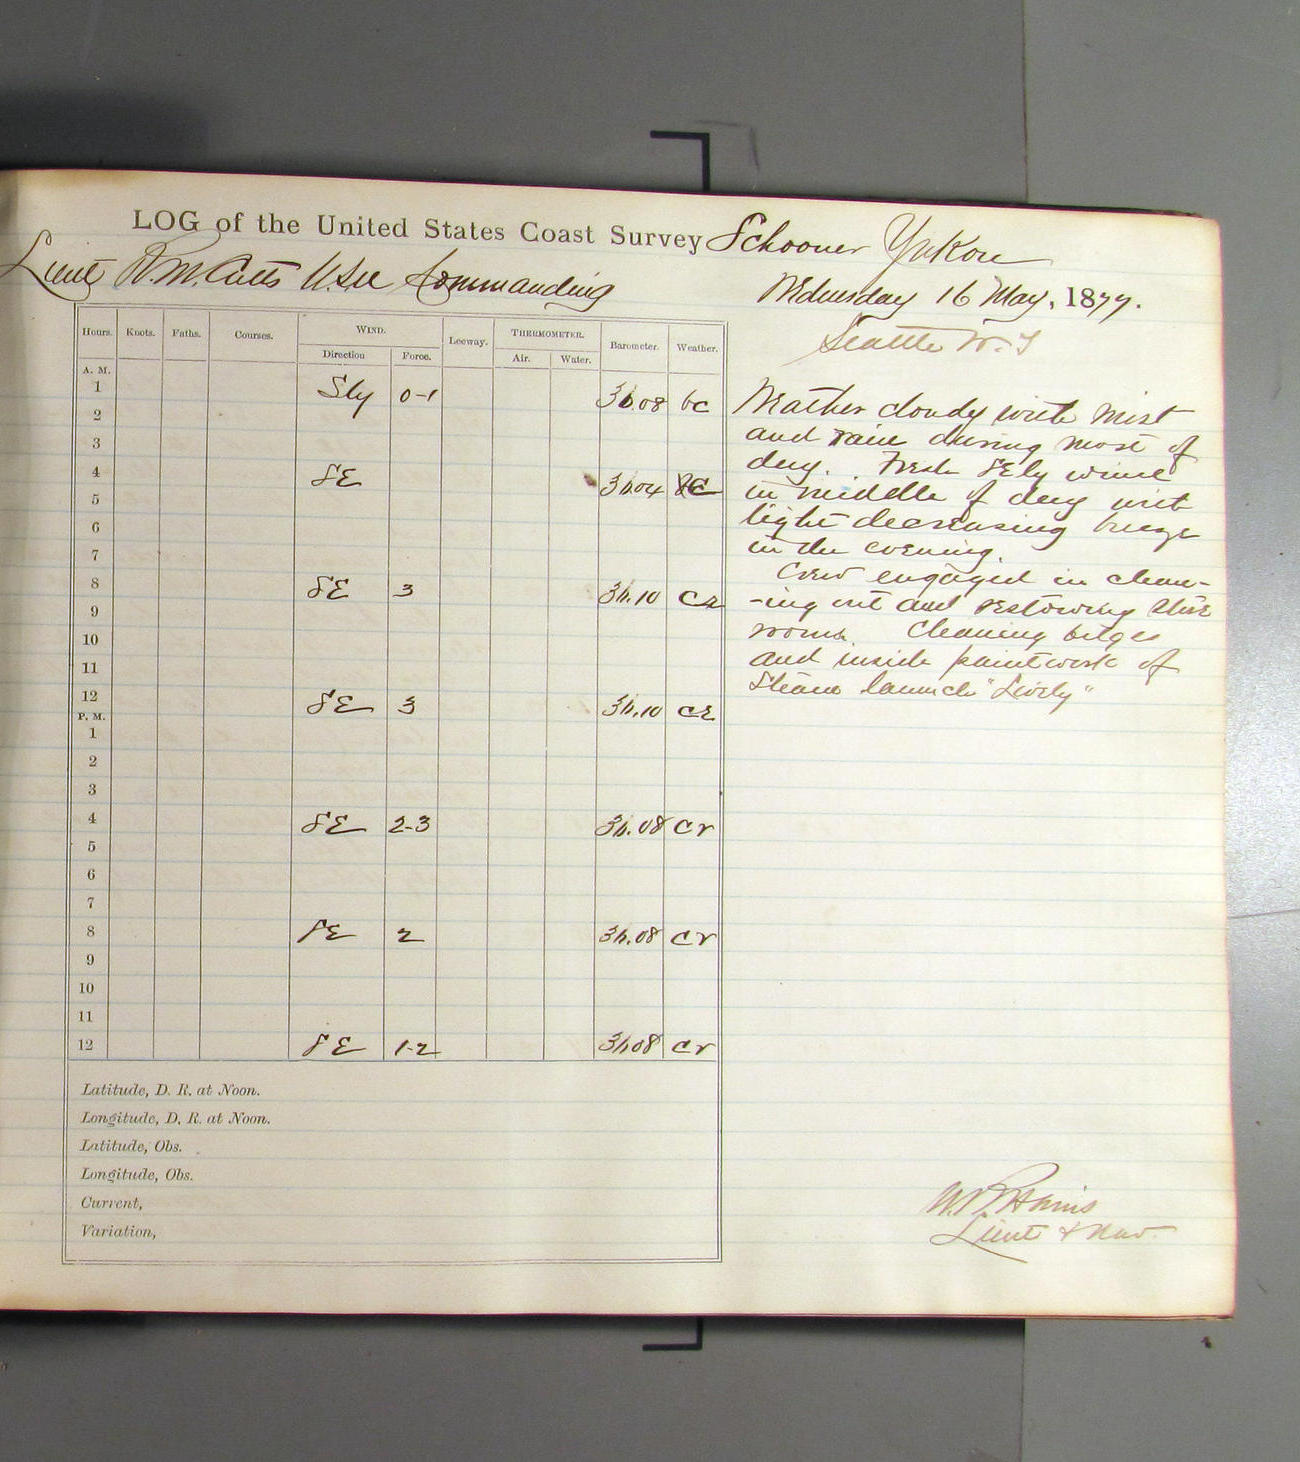 LOG of the United States Coast Survey Schooner Yukon
Lieut R. M. Cutts U.S.N. Commanding
Wednesday 16 May, 1877.
Seattle W. T
Hours. Knots. Faths. Courses. WIND. Leeway. THERMOMETER. Barometer. Weather.
Direction Force. Air. Water.
A. M.
1 Sly 0-1 30.08 bc
2
3
4 SE 30.04
5
6
7
8 SE 3 30.10
9
10
11
12 SE 3 30.10
P. M.
1
2
3
4 SE 2-3 30.08 cr
5
6
7
8 SE 2 30.08 cr
9
10
11
12 SE 1-2 30.08 cr
Latitude, D. R. at Noon.
Longitude, D. R. at Noon.
Latitude, Obs.
Longitude, Obs.
Current,
Variation,
Weather cloudy with mist
and rain during most of
day. Fresh SEly wind
in middle of day with
light decreasing breeze
in the evening.
Crew engaged in clean-
-ing out and restowing store
rooms. Cleaning bilges
and inside paintwork of
Steam launch "Lively"
Lieut & Nav.